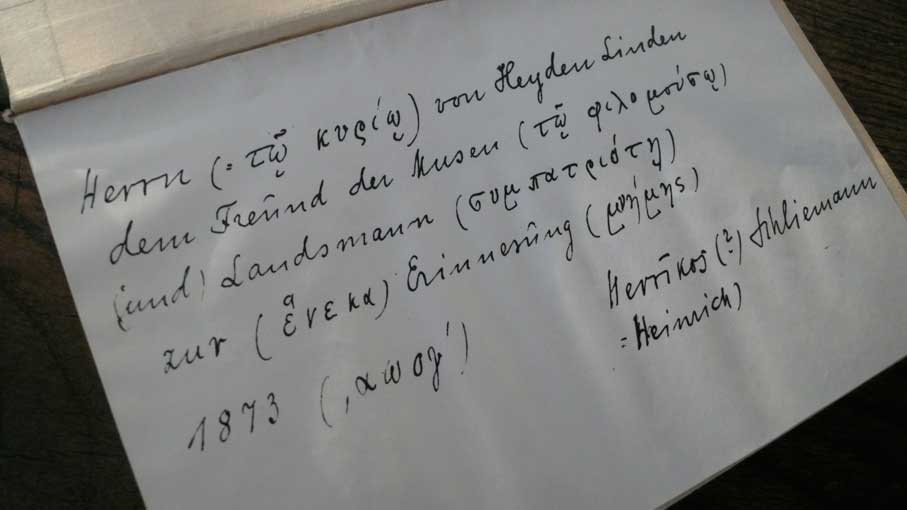 Herrn (= τῷ κυρίῳ) von Heyden Linden
dem Freund der Musen (τῷ φιλομούσῳ)
(und) Landsmann (συμπατριότῃ)
zur (ἕνεκα) Erinnerung (μνήμης)
Herrikos (?) Schliemann
= Heinrich)
1873 (͵αωογ́)